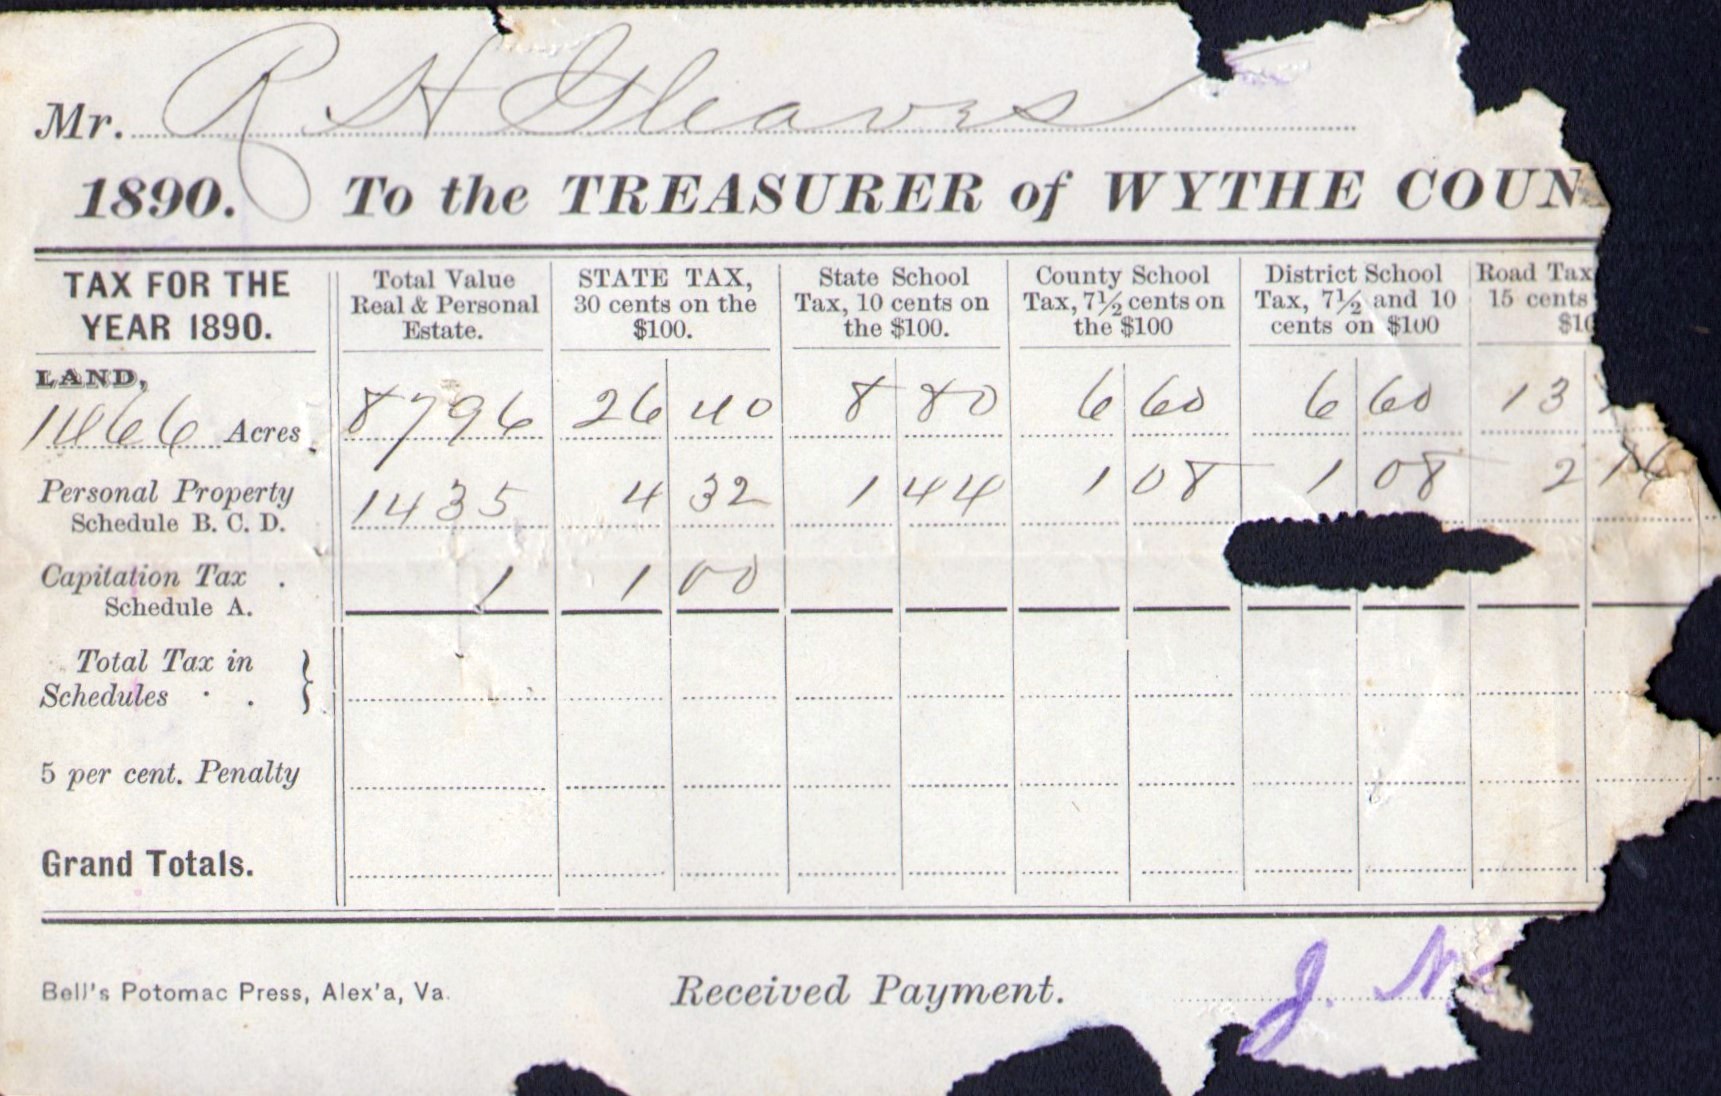 Mr. R H Gleaves
1890. To the TREASURER of WYTHE COUN
TAX FOR THE YEAR 1890. Total Value Real & Personal Estate. STATE TAX, 30 cents on the $100. State School Tax, 10 cents on the $100. County School Tax, 7½ cents on the $100 District School Tax, 7½ and 10 cents on $100 Road Tax 15 cents $10
LAND,
1466 Acres 8796 26 40 8 80 6 60 6 60 13
Personal Property 1435 4 32 1 44 1 08 1 08 2
Schedule B. C. D.
Capitation Tax . 1 1 00
Schedule A.
Total Tax in
Schedules . . }
5 per cent. Penalty
Grand Totals.
Bell's Potomac Press, Alex'a, Va. Received Payment. J. N.